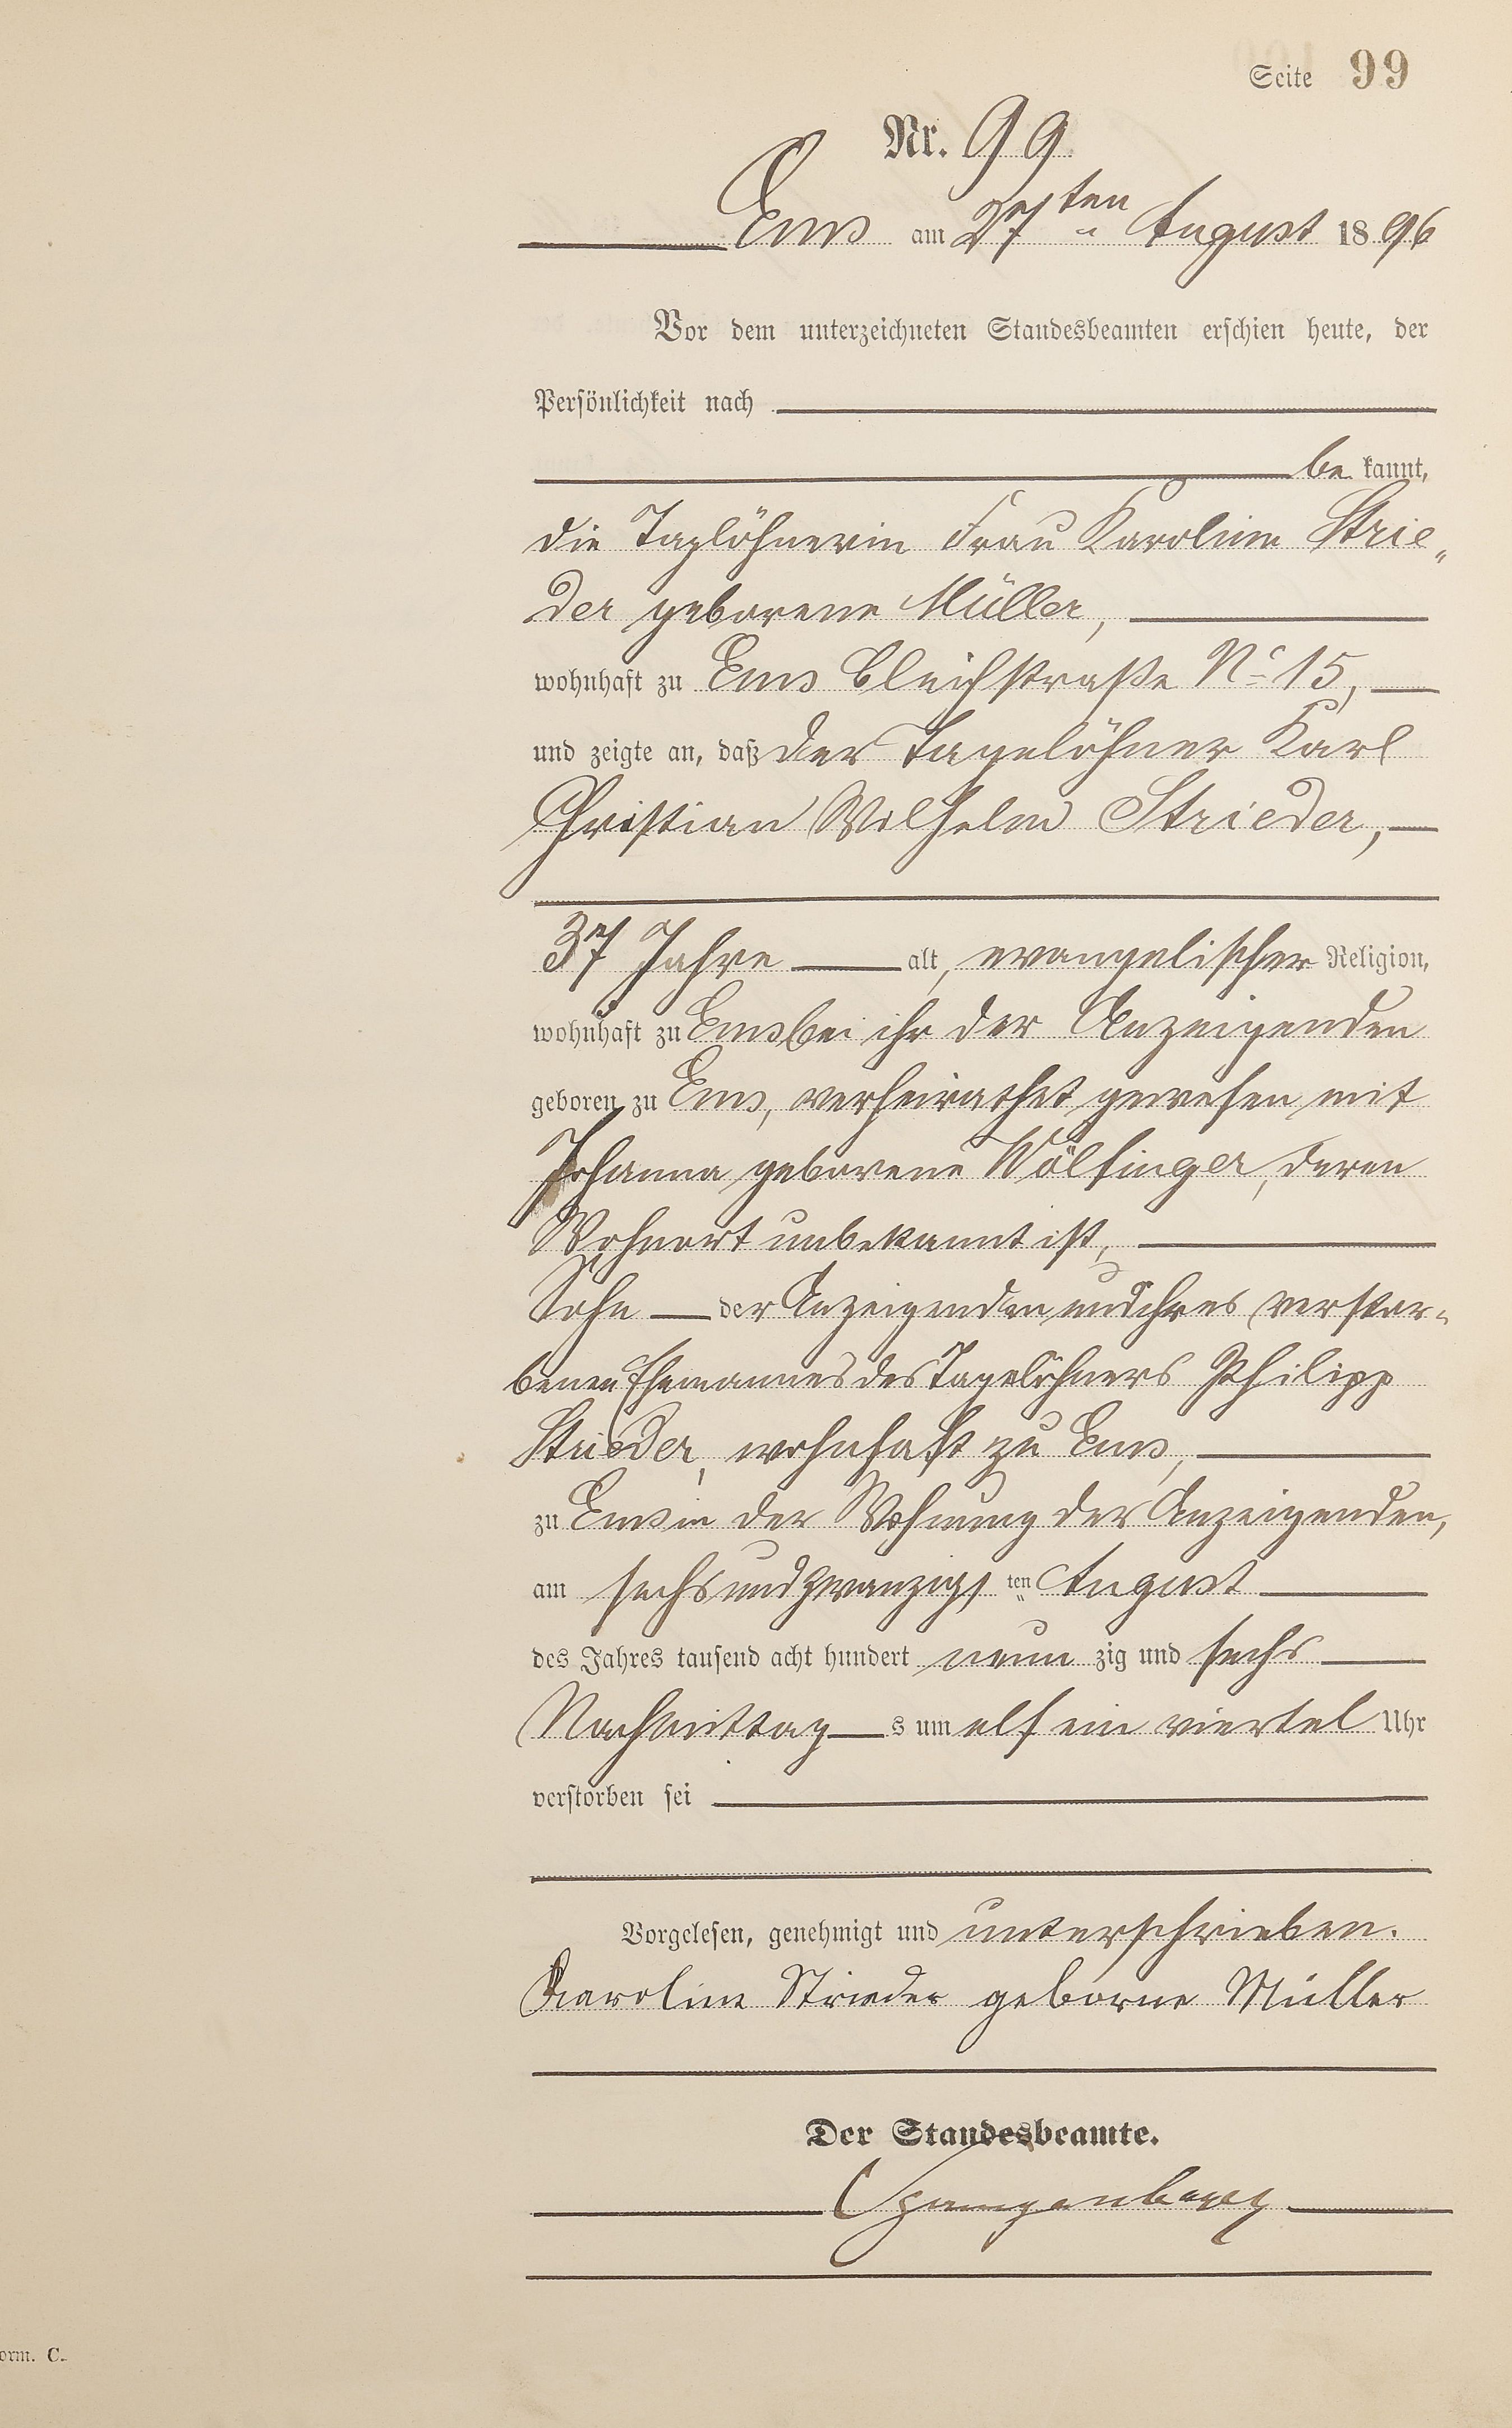 Seite 99
Nr. 99
Ems am 27ten August 1896
Vor dem unterzeichneten Standesbeamten erschien heute, der
Persönlichkeit nach
be kannt,
die Taglöhnerin Frau Karoline Strie„
der geborene Müller,
wohnhaft zu Ems Bleichstraße No 15,
und zeigte an, daß der Tagelöhner Karl
Christian Wilhelm Strieder,
37 Jahre alt, evangelischer Religion,
wohnhaft zu Ems bei ihr der Anzeigenden
geboren zu Ems, verheirathet gewesen mit
Johanna geborene Wölfinger, deren
Wohnort unbekannt ist,
Sohn der Anzeigenden und ihres verstor-
benen Ehemannes des Tagelöhners Philipp
Strieder, wohnhaft zu Ems,
zu Ems in der Wohnung der Anzeigenden,
am sechsundzwanzigsten August
des Jahres tausend acht hundert neun zig und sechs
Nachmittags um elf ein viertel Uhr
verstorben sei
Vorgelesen, genehmigt und unterschrieben.
Karoline Strieder geborne Müller
Der Standesbeamte.
Spangenberg
orm. C.